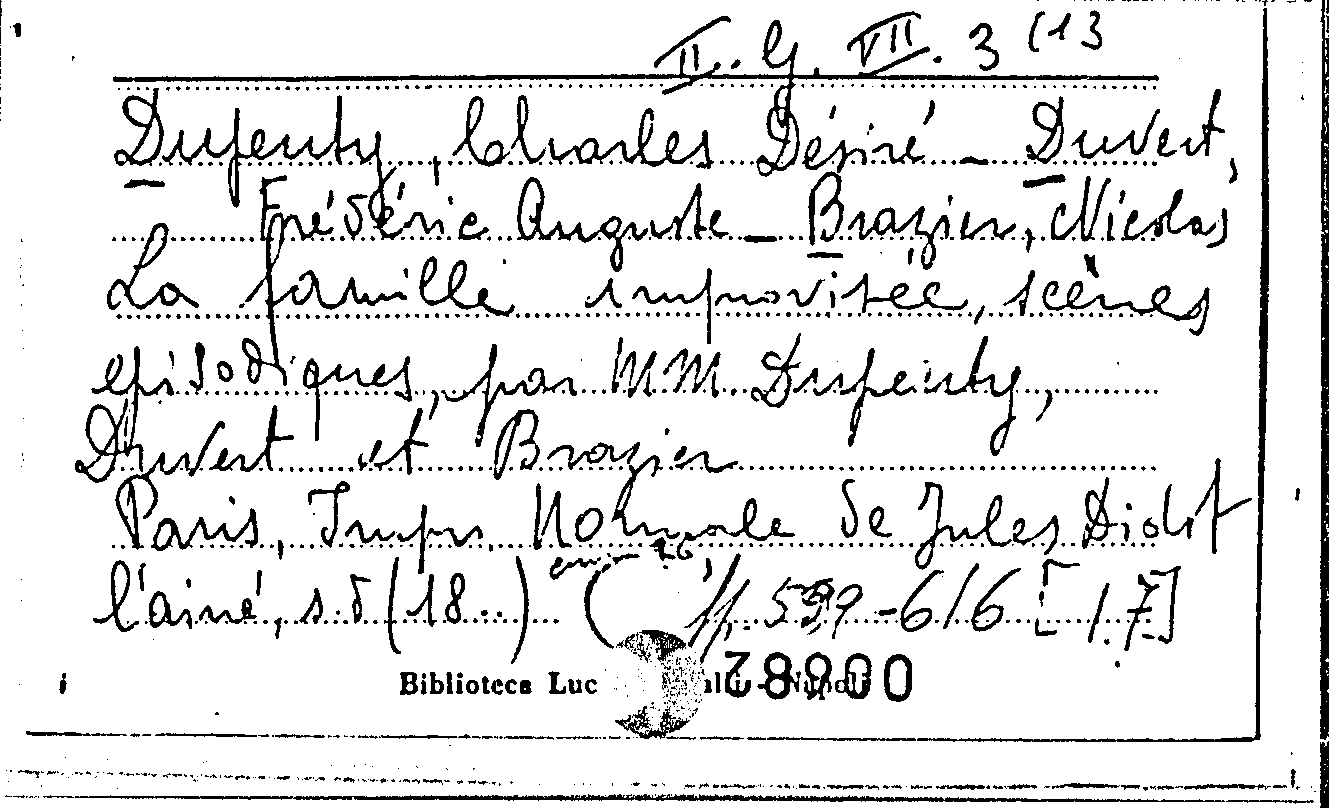 II. G. VII. 3 (13
Dupeuty, Charles Désiré - Duvert,
Frédéric Auguste - Brazier, Nicolas
La famille improvisée, scènes
episodiques, par MM Dupeuty,
Duvert et Brazier
Paris, Impr. Normale de Jules Didot
l'ainé, s.d (18..)
599-616 [1.7]
Biblioteca Luc
00682